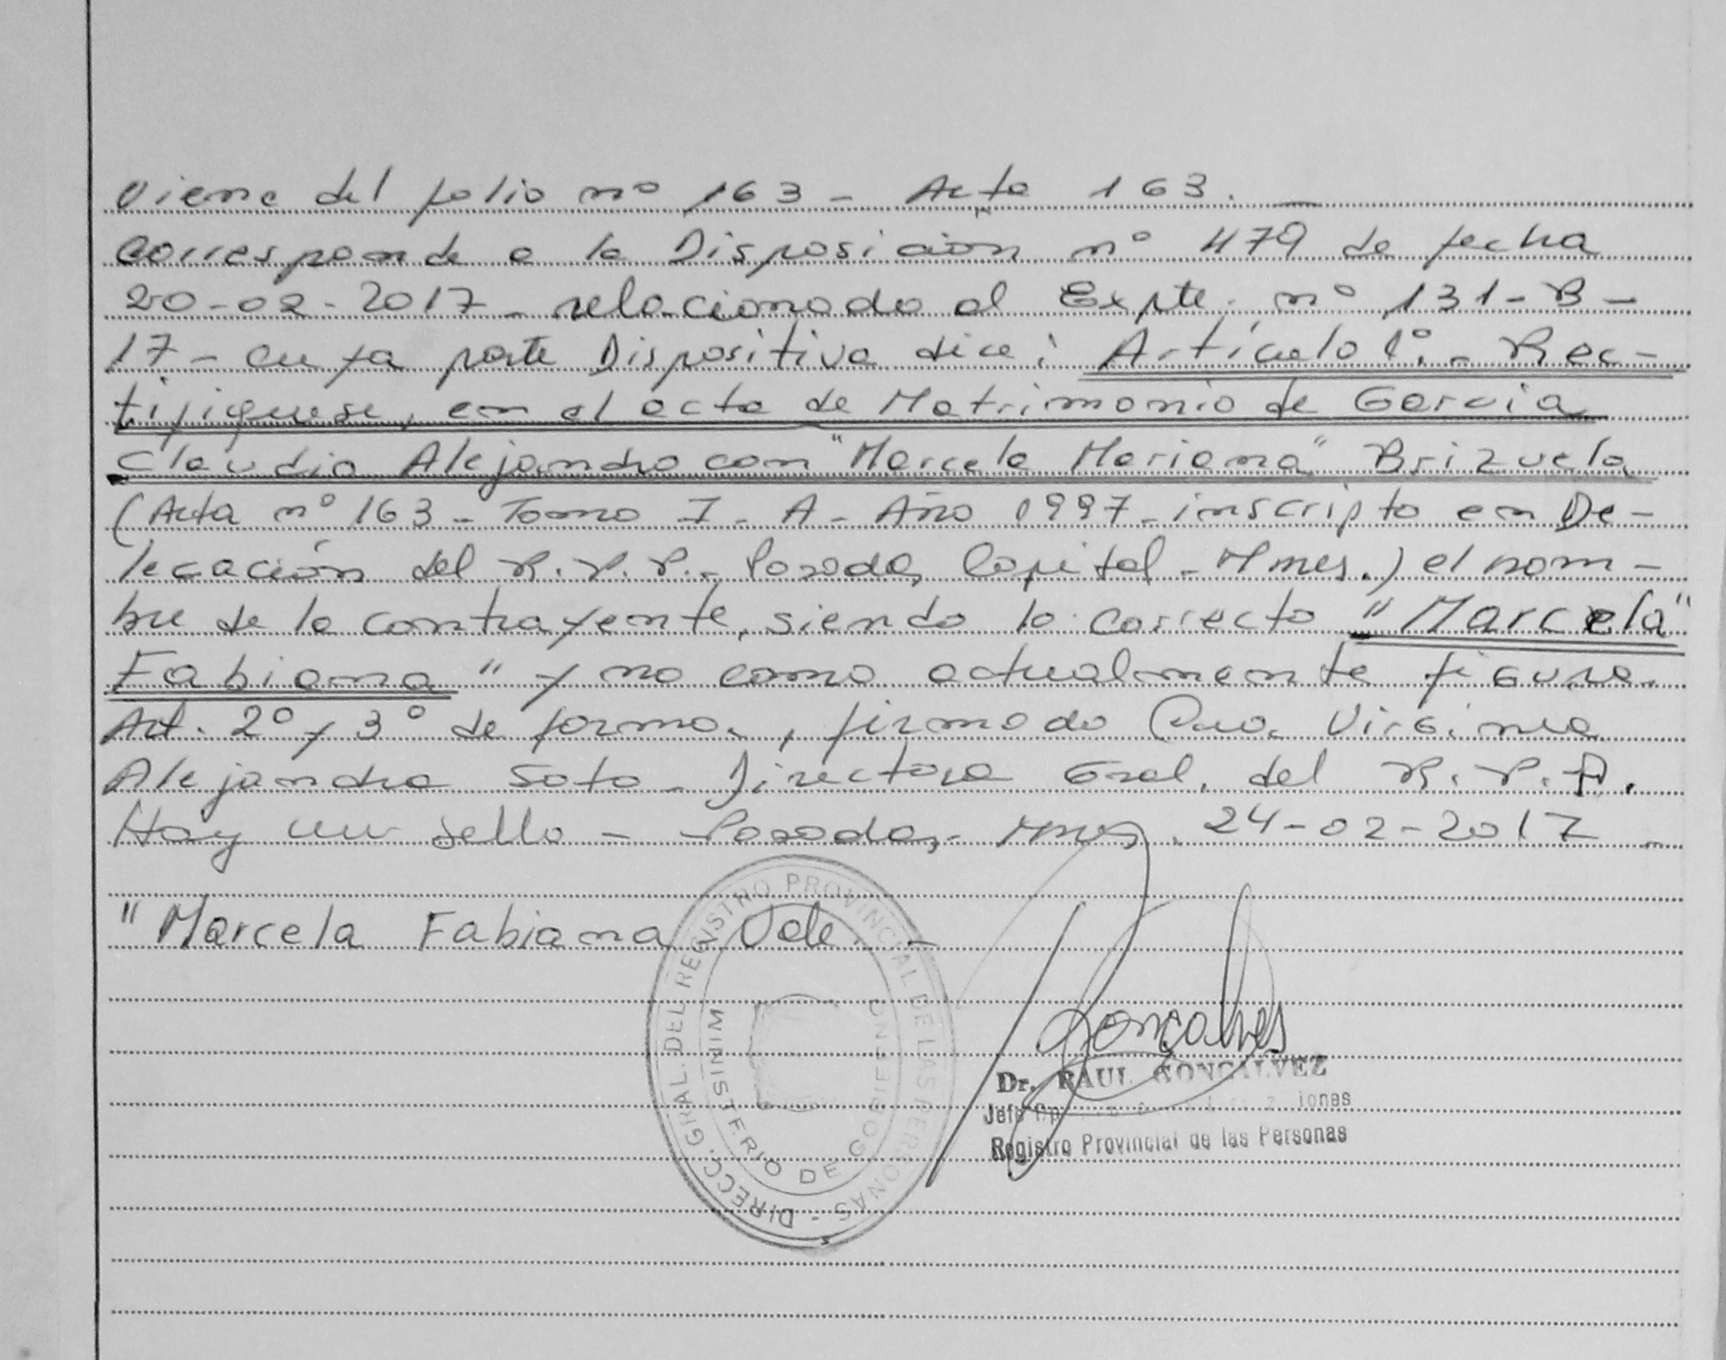 Viene del folio nº 163 - Acta 163. —
Corresponde a la Disposición nº 479 de fecha
20-02-2017 - relacionado al Expte. nº 131-B-
17 - cuya parte Dispositiva dice: Artículo 1º. - Rec-
tifiquese, en el acta de Matrimonio de Garcia
Claudio Alejandro con "Marcela Mariana" Brizuela
(Acta nº 163 - Tomo I - A - Año 1997 - inscripto en De-
legación del R.P.P. - Posadas, Capital - Mnes.) el nom-
bre de la contrayente, siendo lo correcto "Marcela"
Fabiana" y no como actualmente figura.
Art. 2º y 3º de forma., firmado Virginia
Alejandra Soto - Directora Gral. del R.P.P.
Hay un sello - Posadas, - Mnes. 24-02-2017 -
"Marcela Fabiana Vale. -
DIRECC. GRAL. DEL REGISTRO PROVINCIAL DE LAS PERSONAS -
MINISTERIO DE GOBIERNO
Goncalves
Dr. RAUL GONCALVEZ
Jefe Dp iones
Registro Provincial de las Personas